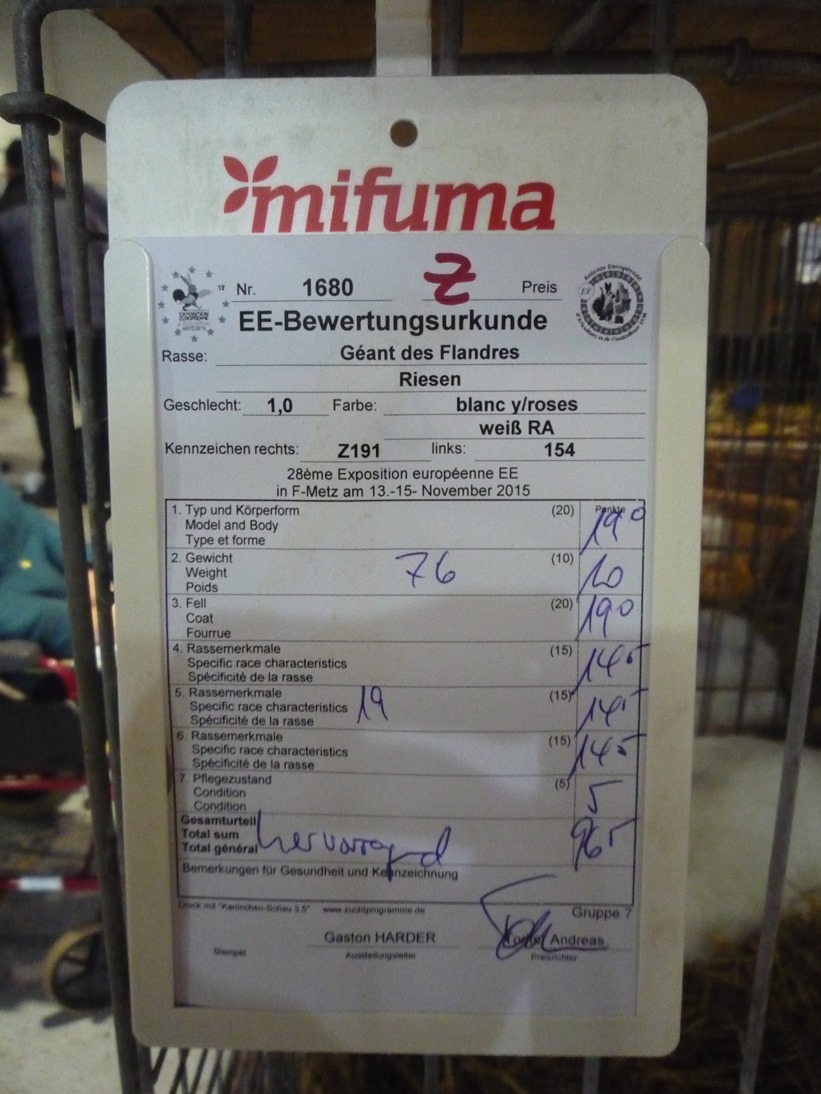 mifuma
Nr. 1680 Z Preis
EE-Bewertungsurkunde
Rasse: Géant des Flandres
Riesen
Geschlecht: 1,0 Farbe: blanc y/roses
weiß RA
Kennzeichen rechts: Z191 links: 154
28ème Exposition européenne EE
in F-Metz am 13.-15- November 2015
1. Typ und Körperform (20) Punkte
Model and Body 19 0
Type et forme
2. Gewicht (10)
Weight 76 10
Poids
3. Fell (20)
Coat 19 0
Fourrue
4. Rassemerkmale (15)
Specific race characteristics 14 5
Spécificité de la rasse
5. Rassemerkmale (15)
Specific race characteristics 19 14 5
Spécificité de la rasse
6. Rassemerkmale (15)
Specific race characteristics 14 5
Spécificité de la rasse
7. Pflegezustand (5)
Condition 5
Condition
Gesamturteil
Total sum 96 5
Total général hervorragend
Bemerkungen für Gesundheit und Kennzeichnung
Druck mit "Kaninchen-Schau 3.5" www.zuchtprogramme.de Gruppe 7
Gaston HARDER Andreas
Stempel Ausstellungsleiter Preisrichter